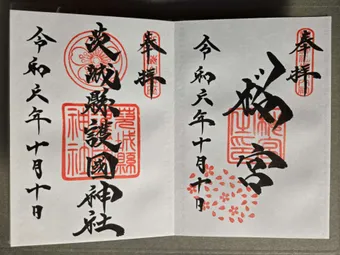 奉拝
櫻宮
令和六年十月十日
奉拝
茨城縣護國神社
令和六年十月十日
茨城縣
神社